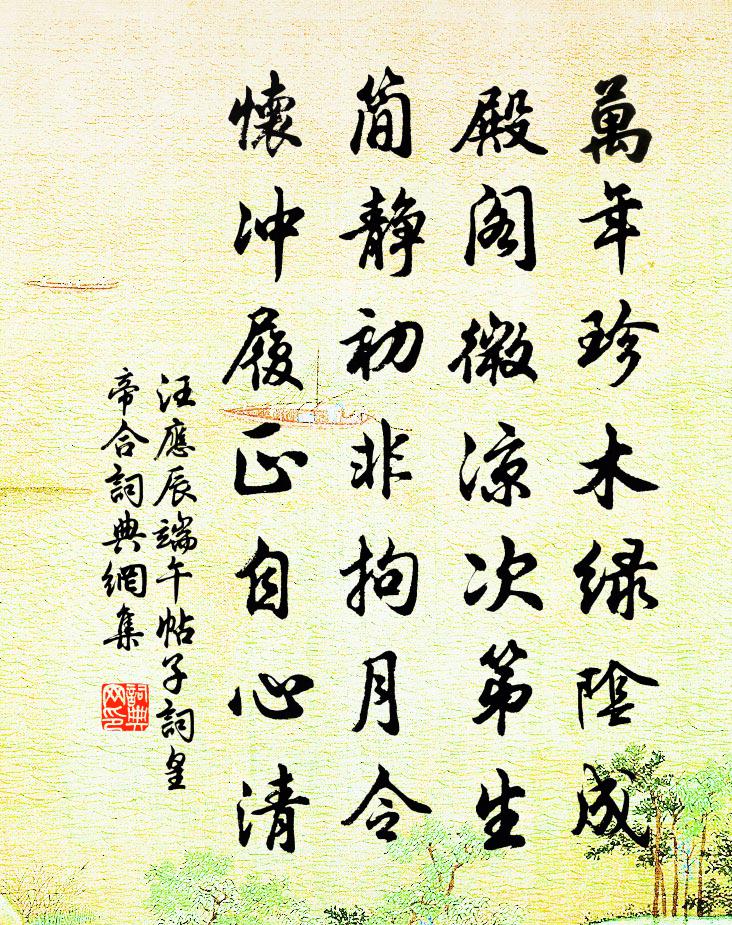 萬年珍木綠陰成
殿閣微涼次第生
簡静初非拘月令
懷冲履正自心清
汪應辰端午帖子詞皇
帝合詞典網集
詞典
网印